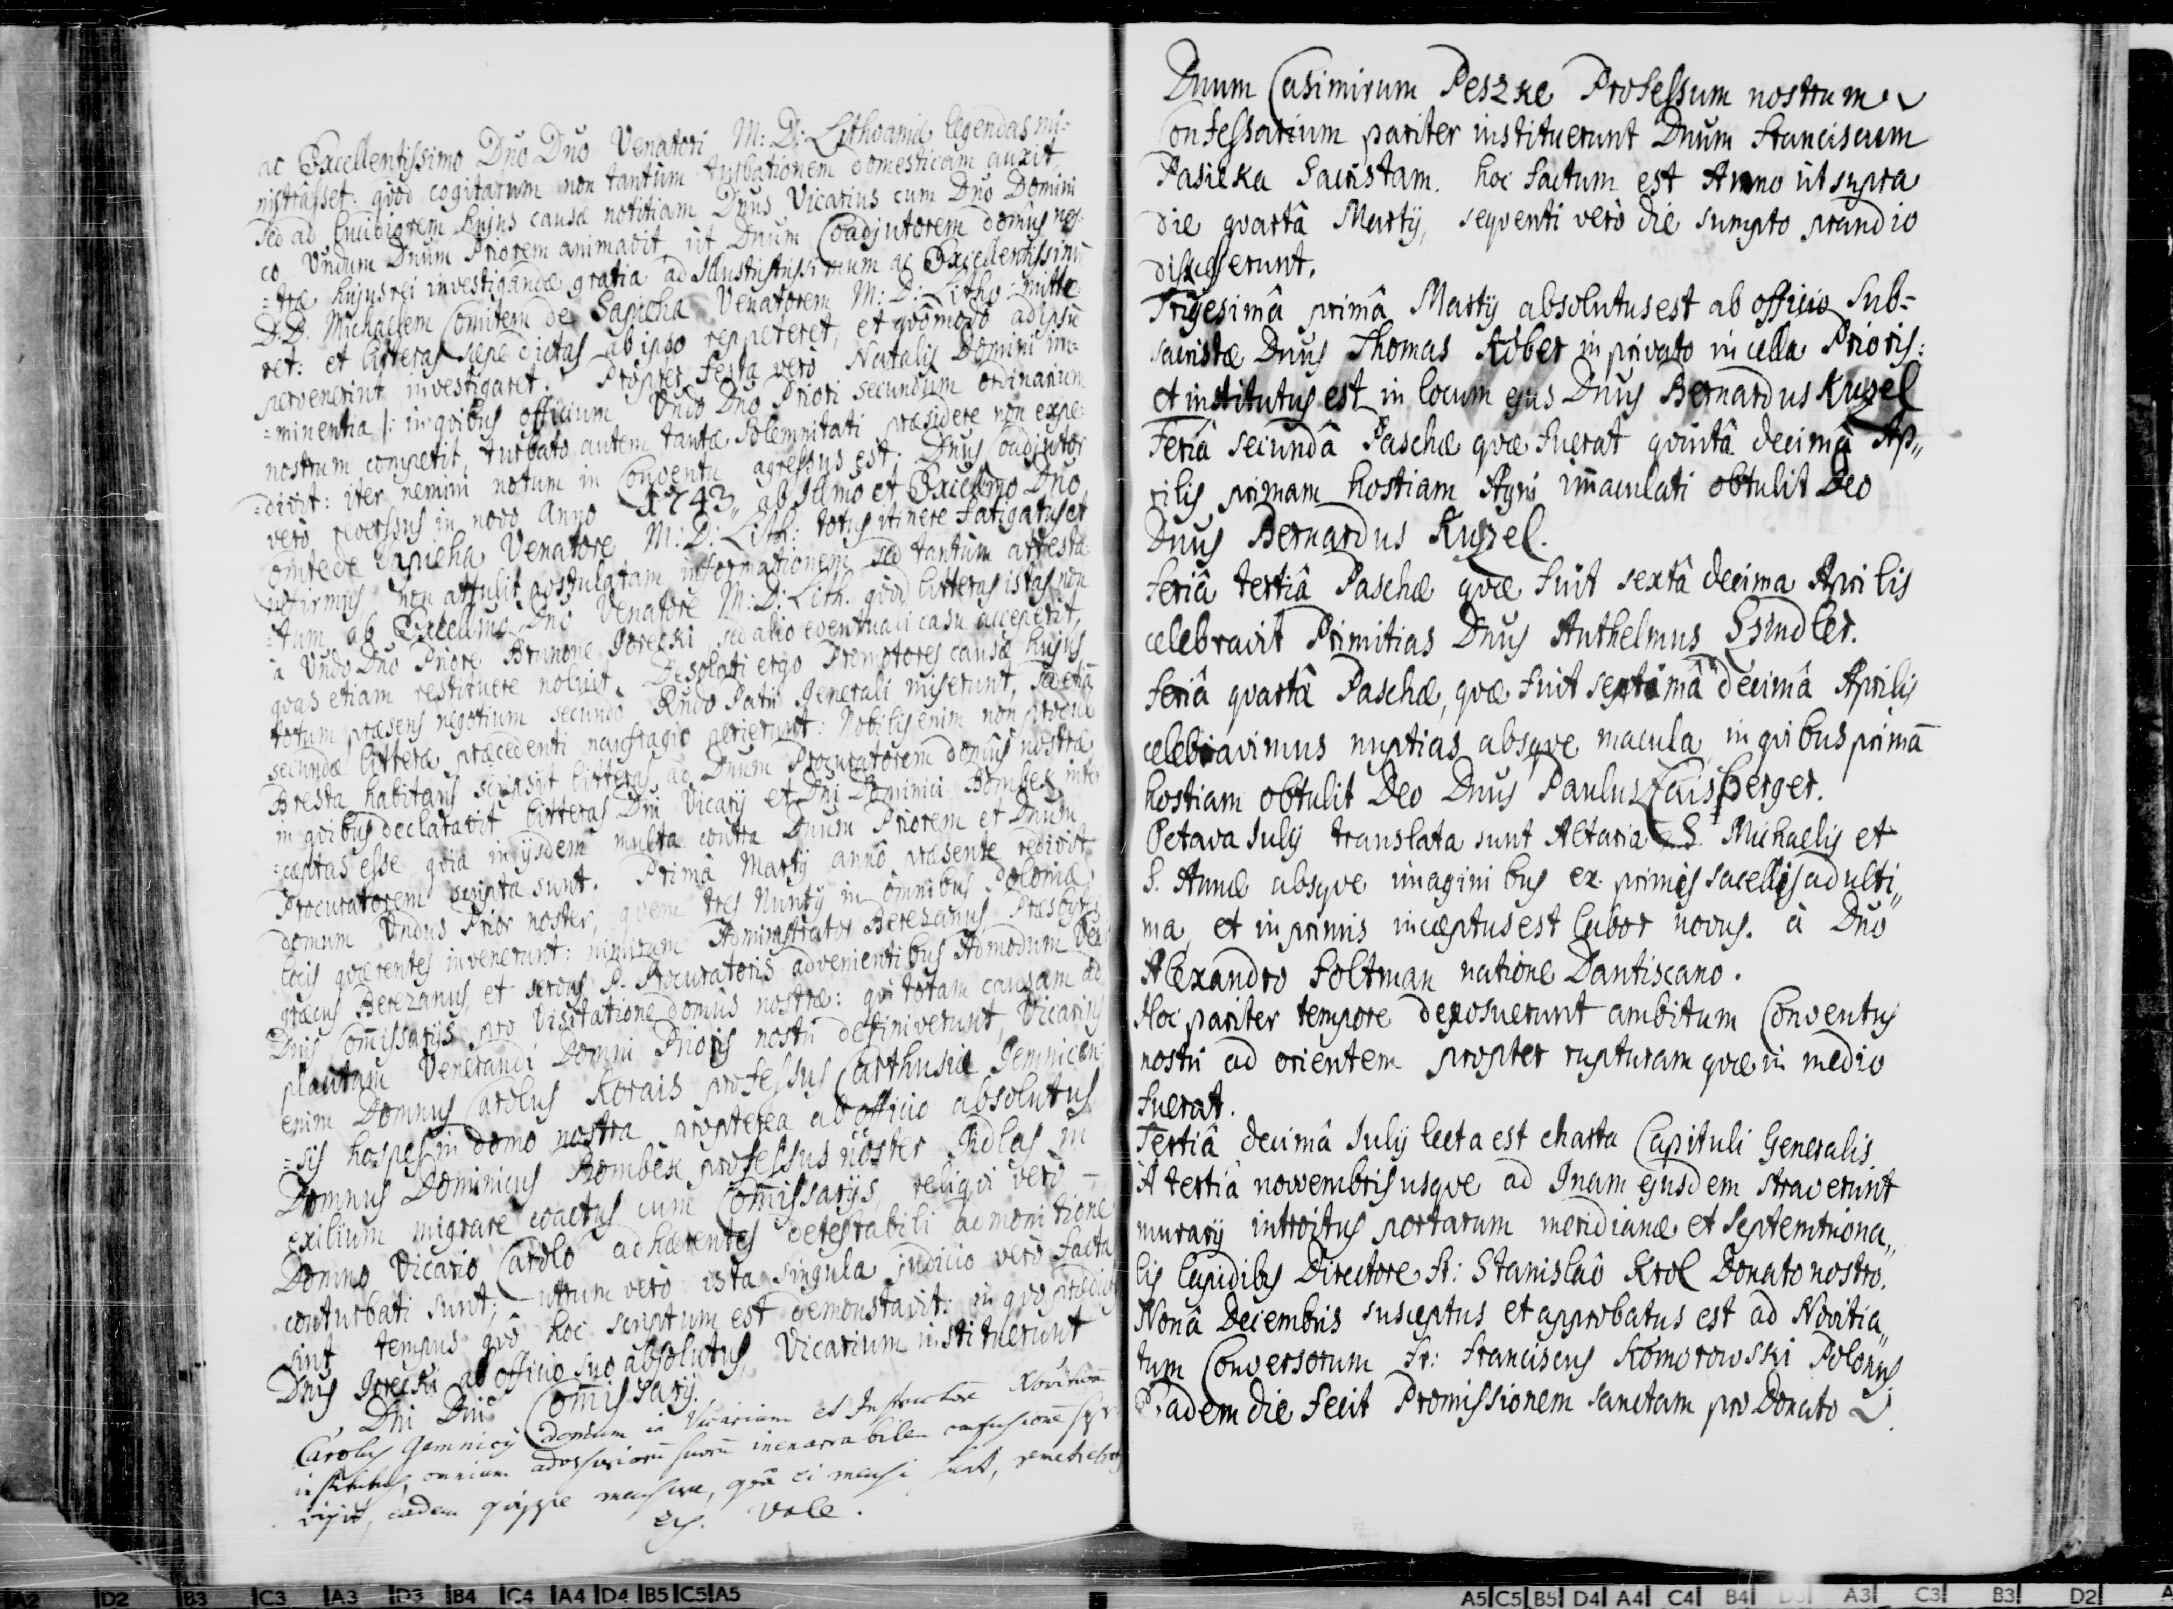 ac Excellentissimo Dño Dño Venatori M: D: Lithvaniæ legendas mi-
nistrasset: qvod cogitatum non tantum turbationem domesticam auxit
sed ad lucidiorem hujus causæ notitiam Dnus Vicarius cum Dño Domini
co Vndum Dnum Priorem animavit, ut Dnum Coadjutorem domûs nos-
=træ hujus rei investigandæ gratia ad Illustrissimum ac Excellentissimũ
D.D. Michaelem Comitem de Sapieha Venatorem M: D: Litho: mitte-
ret: et litteras sæpe dictas ab ipso reppeteret, et qvômodo ad ipsũ
pervenerint investigaret. Propter festa verò Natalis Domini im-
=minentia /: in qvibus officium Vndo Dño Priori secundum ordinarium
nostrum competit, turbato autem tantæ Solemnitati præsidere non expe-
=divit: iter nemini notum in Conventu agressus est: Dnus Coadjutor
verò reverssus in novo Anno 1743, ab Illmo et Excellmo Dño
Comite de Sapieha Venatore M: D: Lith: totus itinere fatigatus et
infirmus non attulit postulatam informationem sed tantum attesta-
=tum ab Excellmo Dño Venatore M: D: Lith. qvod litteras istas non
à Vndo Dño Priore Brunone Gorecki sed alio eventuali casu acceperit,
qvas etiam restituere noluit. Desolati ergo Promotores causæ hujus
totum præsens negotium secundo Rndo Patri Generali miserunt, sed etiã
secundæ litteræ præcedenti naufragio perierunt: Nobilis enim non procul
Bresta habitans scripsit litteras ad Dnum Procuratorem domûs nostræ
in qvibus declaravit litteras Dni Vicarij et Dni Dominici Bombek inter
=ceptas esse qvia in ijsdem multa contra Dnum Priorem et Dnum
Procuratorem scripta sunt. Primâ Martij annô præsente redivit
domum Vndus Prior noster, qvem tres Nuntij in omnibus Poloniæ
locis qværentes invenerunt: nimirum Administrator Berezanus, Præsbyter
græcus Berezanus, et servus P. Procuratoris advenientibus Admodum Ven
Dnis Commissarijs pro Visitatione domûs nostræ: qvi totam causam ad
plantam Venerandi Domni Prioris nostri definiverunt, Vicarius
enim Domnus Carolus Korais professus Carthusiæ Gemnicen-
=sis hospes in domo nostra propterea ab officio absolutus
Domnus Dominicus Bombek professus noster Gidlas in
exilium migrare coactus cum Commissarijs, reliqvi verò
Domno Vicario Carolo adhærentes detestabili admonitione
conturbati sunt; utrum verò ista singula judicio verò facta
sint tempus qvô hoc scriptum est demonstravit: in qvo
Dnus Gorecki ab officio suo absolutus, Vicarium instituerunt
Dni Dni Commissarij.
Carolus Gemnicij in Vicarium et Instructorẽ Novitiorũ
institutus, omnium adversariorũ suorũ inenarrabilem confusionẽ
eadem qvippe mensura, qvâ ei mensi sunt,
Vale.
Dnum Casimirum Peszke Professum nostrum
Confessarium pariter instituerunt Dnum Franciscum
Pasieka Sacristam. hoc factum est Anno ut supra
die qvartâ Martij, seqventi verò die sumpto prandio
discesserunt.
Trigesimâ primâ Martij absolutus est ab officio Sub-
sacristæ Dnus Thomas Adber in privato in cella Prioris:
et institutus est in locum ejus Dnus Bernardus Kuzel
Feriâ secundâ Paschæ qvæ fuerat qvintâ decimâ Ap„
rilis primam hostiam Agni immaculati obtulit Deo
Dnus Bernardus Kuzel.
Feriâ tertiâ Paschæ qvæ fuit sextâ decima Aprilis
celebravit Primitias Dnus Anthelmus Szindler.
Feriâ qvartâ Paschæ, qvæ fuit septimâ decimâ Aprilis
celebravimus nuptias absqve macula in qvibus primã
hostiam obtulit Deo Dnus Paulus Caisperger.
Octava Julij translata sunt Altaria S. Michaelis et
S. Annæ absqve imaginibus ex primis sacellis ad ulti„
ma, et in primis incæptus est labor novus. à Dño
Alexandro Foltman natione Dantiscano.
Hoc pariter tempore deposuerunt ambitum Conventus
nostri ad orientem propter rupturam qvæ in medio
fuerat.
Tertiâ decimâ Julij lecta est charta Capituli Generalis
A tertiâ novembris usqve ad 9nam ejusdem straverunt
murarij introitus portarum meridianæ et septemtriona„
lis lapidibus Directore fr: Stanislaô Krol Donato nostro.
Nonâ Decembris susceptus et approbatus est ad Novitia„
tum Conversorum Fr: Franciscus Komorowski Polonus
Eadem die fecit Promissionem sanctam pro Donato